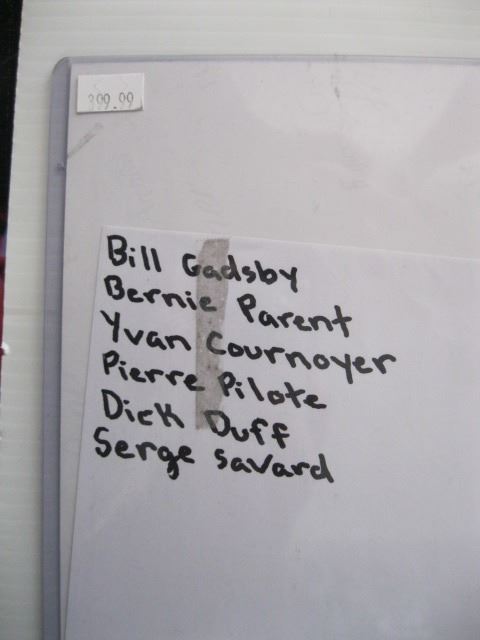 399.99
Bill Gadsby
Bernie Parent
Yvan Cournoyer
Pierre Pilote
Dick Duff
Serge Savard